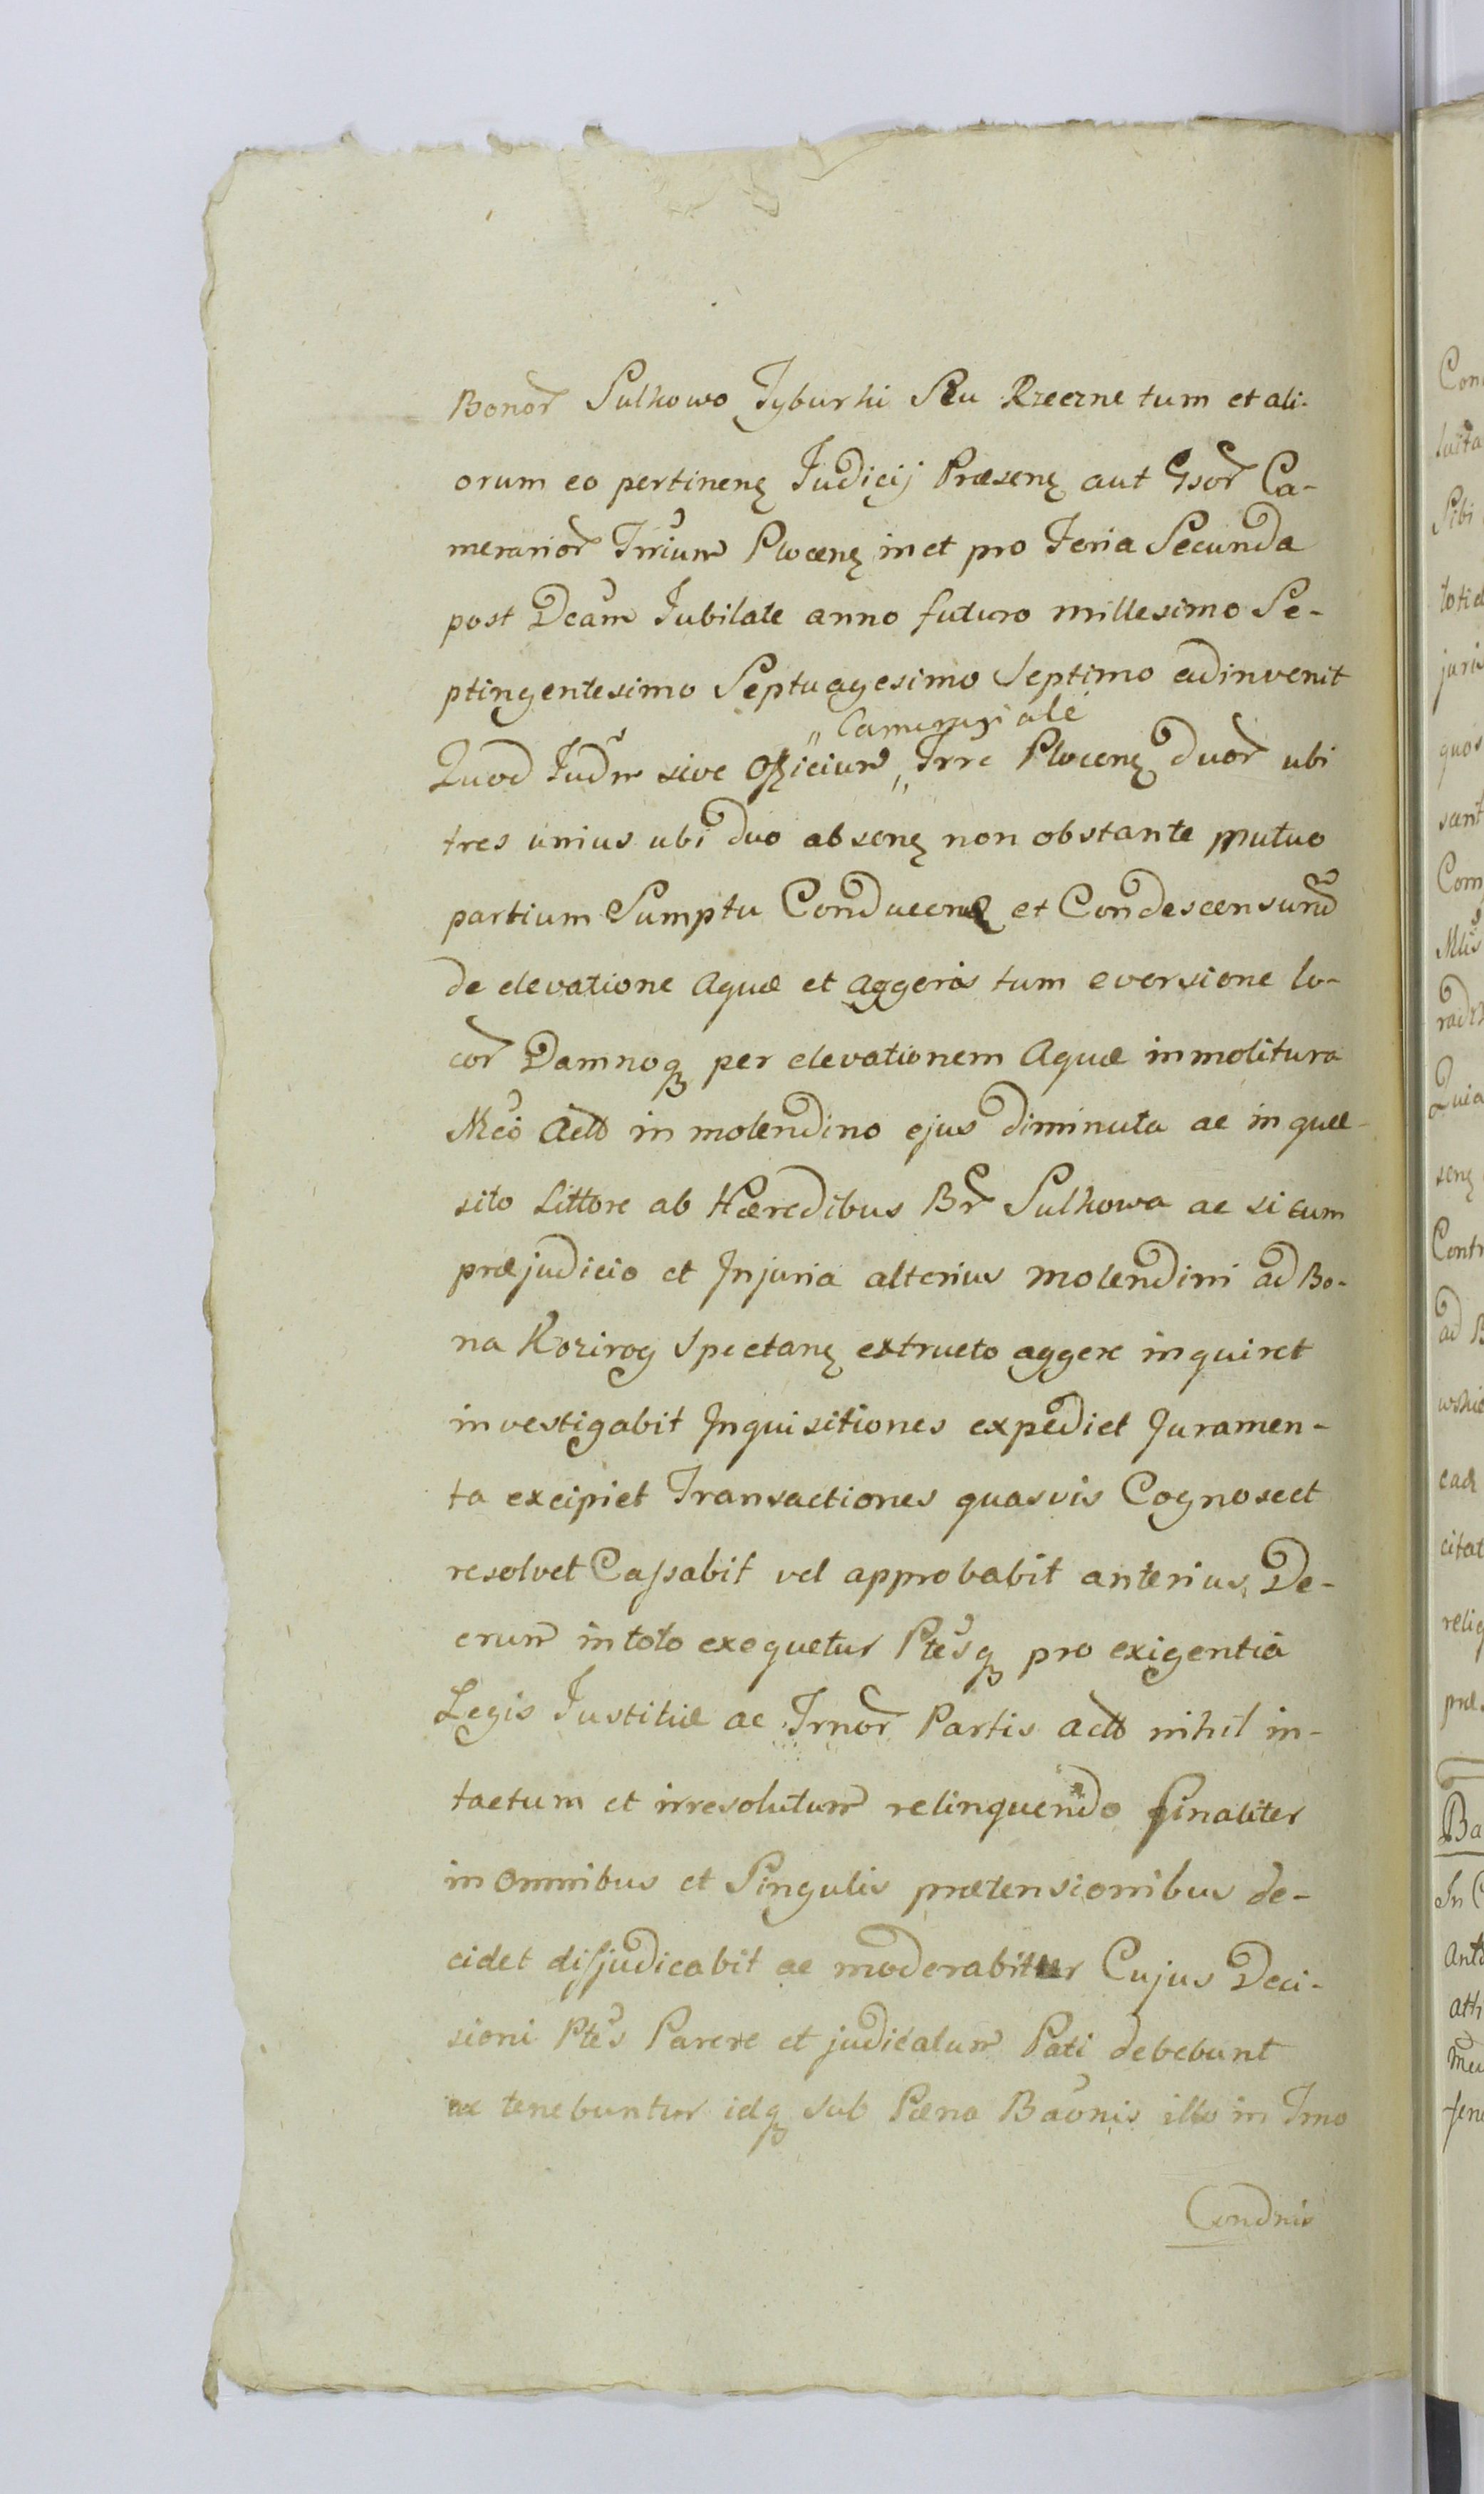 Bonor Sulkowo Tyburki Seu Rzeczne tum et ali-
orum eo pertinenꝫ Judicij Præsenꝫ aut Gsor Ca-
merarior Trrium Plocenꝫ in et pro Feria Secunda
post Dcam Jubilate anno futuro millesimo Se-
ptingentesimo Septuagesimo Septimo adinvenit
„Camerariale
Quod Judm sive Officium „ Trre Plocenꝫ duor ubi
tres unius ubi duo absenꝫ non obstante mutuo
partium Sumptu Conducenꝫ et Condescensurũ
de elevatione Aquæ et Aggeris tum eversione lo-
cor Damnoqꝫ per elevationem Aquæ in molitura
Mco Actô in molendino ejus diminuta ac in quæ-
sito Littore ab Hæredibus Br Sulkowa ac si cum
præjudicio et Injuria alterius molendini ad Bo-
na Kozirog Spectanꝫ extructo aggere inquiret
investigabit Inquisitiones expediet Juramen-
ta excipiet Transactiones quasvis Cognoscet
resolvet Cassabit vel approbabit anterius De-
crum in toto exequetur Ptesqꝫ pro exigentia
Legis Justitiæ ac Trnor Partis Actô nihil in-
tactum et irresolutum relinquendo finaliter
in Omnibus et Singulis prætensionibus de-
cidet disjudicabit ac moderabitur Cujus Deci-
sioni Ptes Parere et judicatum Pati debebunt
ac tenebuntur idqꝫ sub Pæna Baonis illo in Trno
Condnis